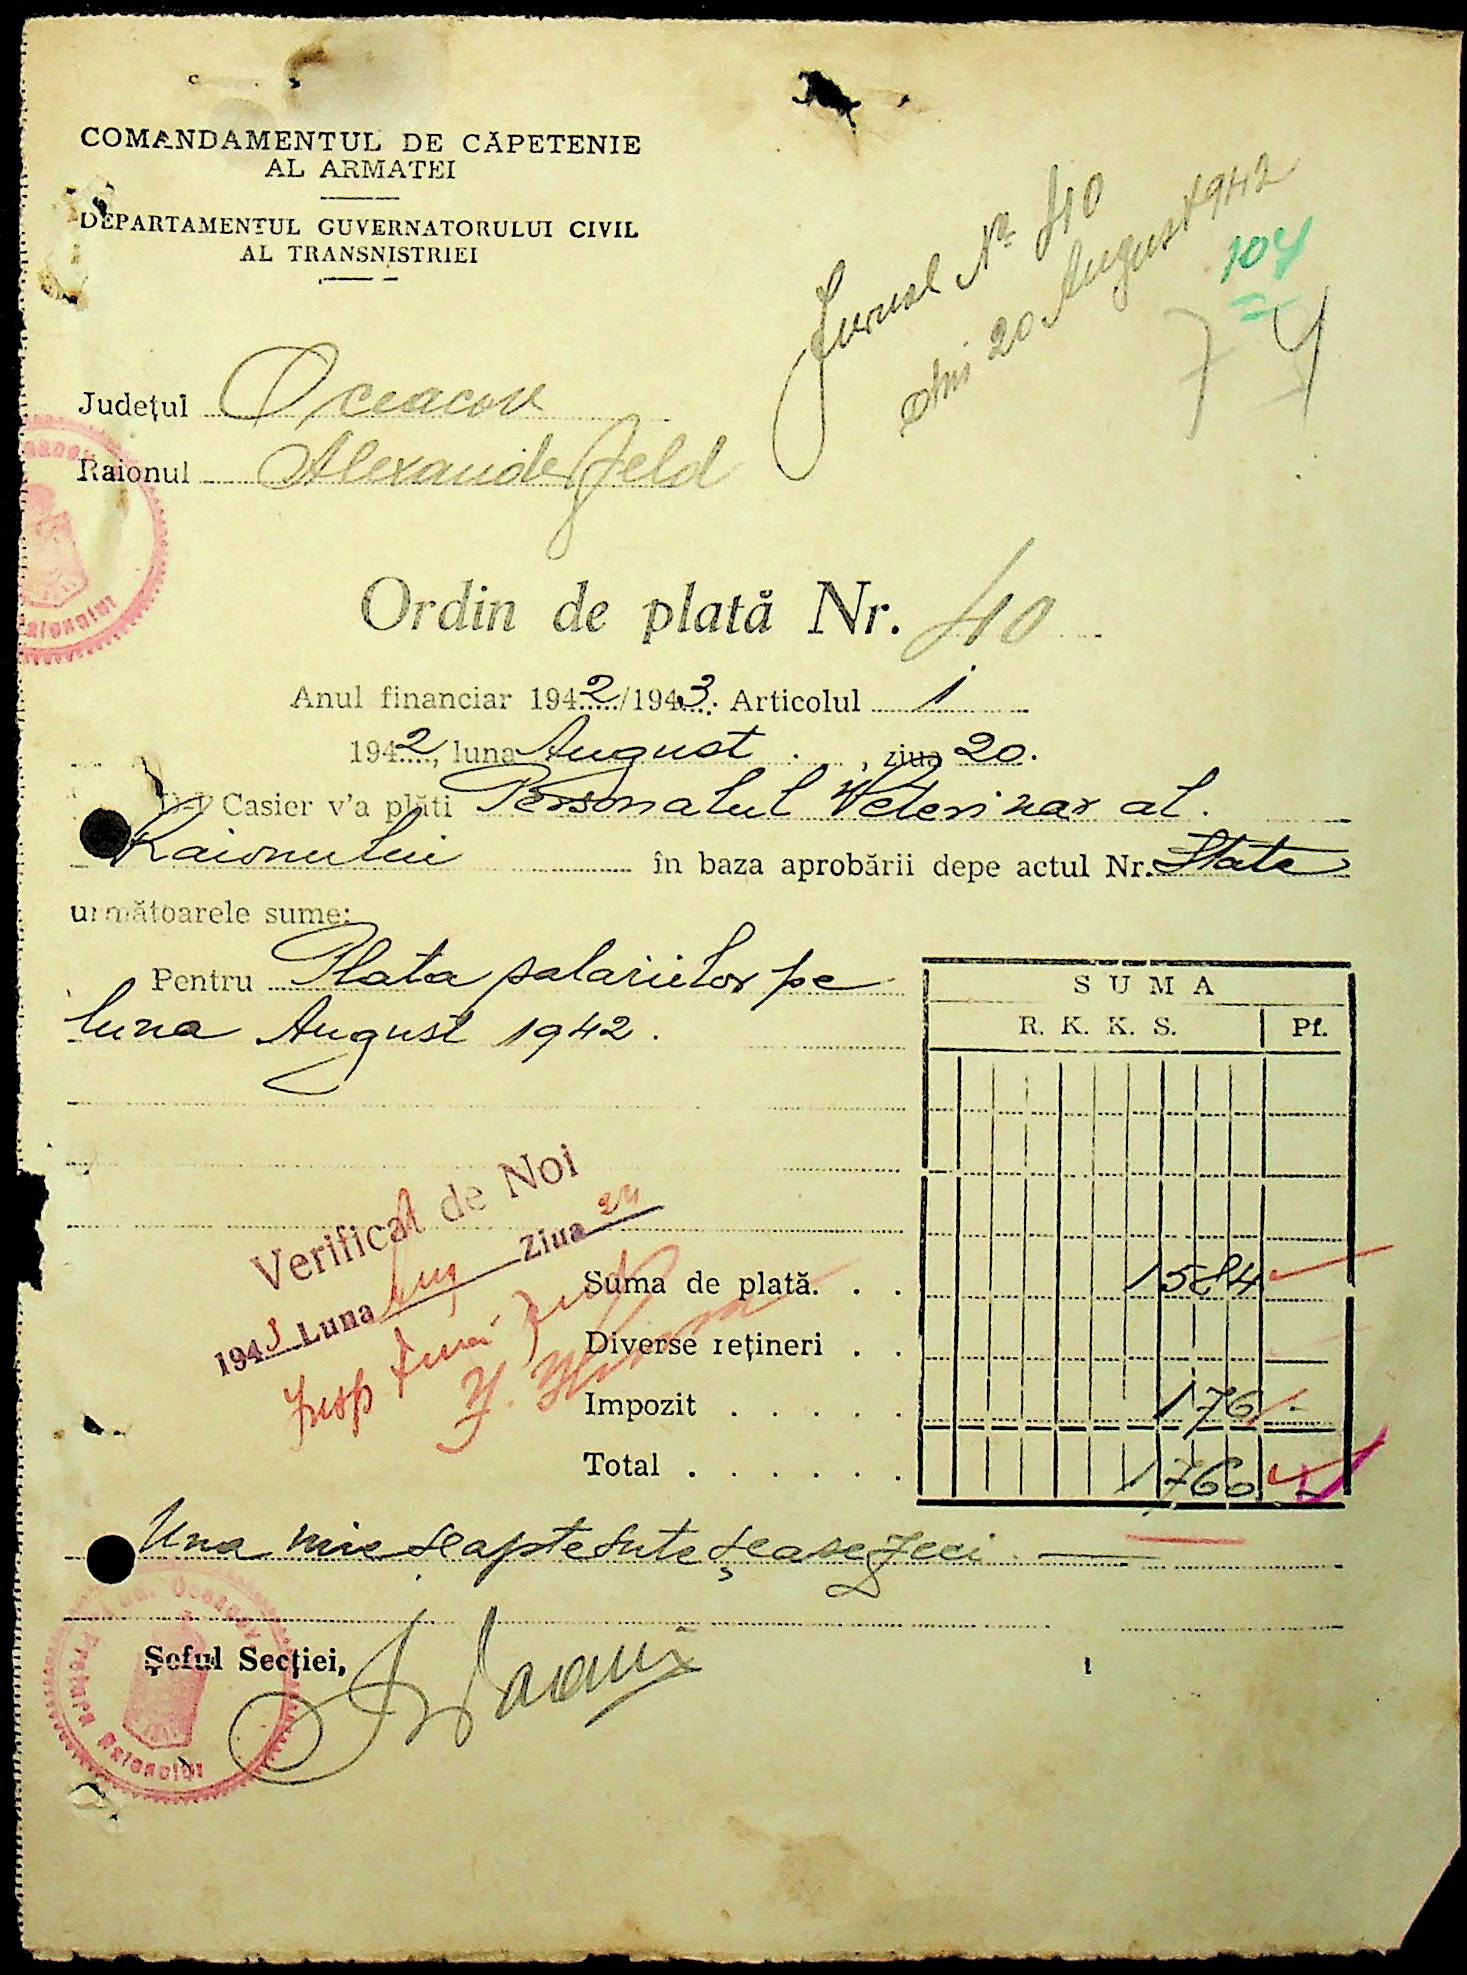 COMANDAMENTUL DE CĂPETENIE
AL ARMATEI
DEPARTAMENTUL GUVERNATORULUI CIVIL
AL TRANSNISTRIEI
Jurnal No 40
din 20 August 1942
104
74
Județul Oceacov
Raionul Alexanderfeld
Ordin de plată Nr. 40
Anul financiar 1942/1943. Articolul 1
1942, luna August . , ziua 20.
D-l Casier v'a plăti Personalul Veterinar al.
Raionului în baza aprobării depe actul Nr. State
următoarele sume:
Pentru Plata salariilor pe
luna August 1942.
SUMA
R. K. K. S. Pf.
Verificat de Noi
1943 Luna Aug Ziua 24
Insp
Suma de plată. . . 1584
Diverse rețineri . .
Impozit . . . . . 176 -
Total . . . . . . 1760 -
Una mie șaptesute șeasezeci —
Șeful Secției,
Pretura Raionului